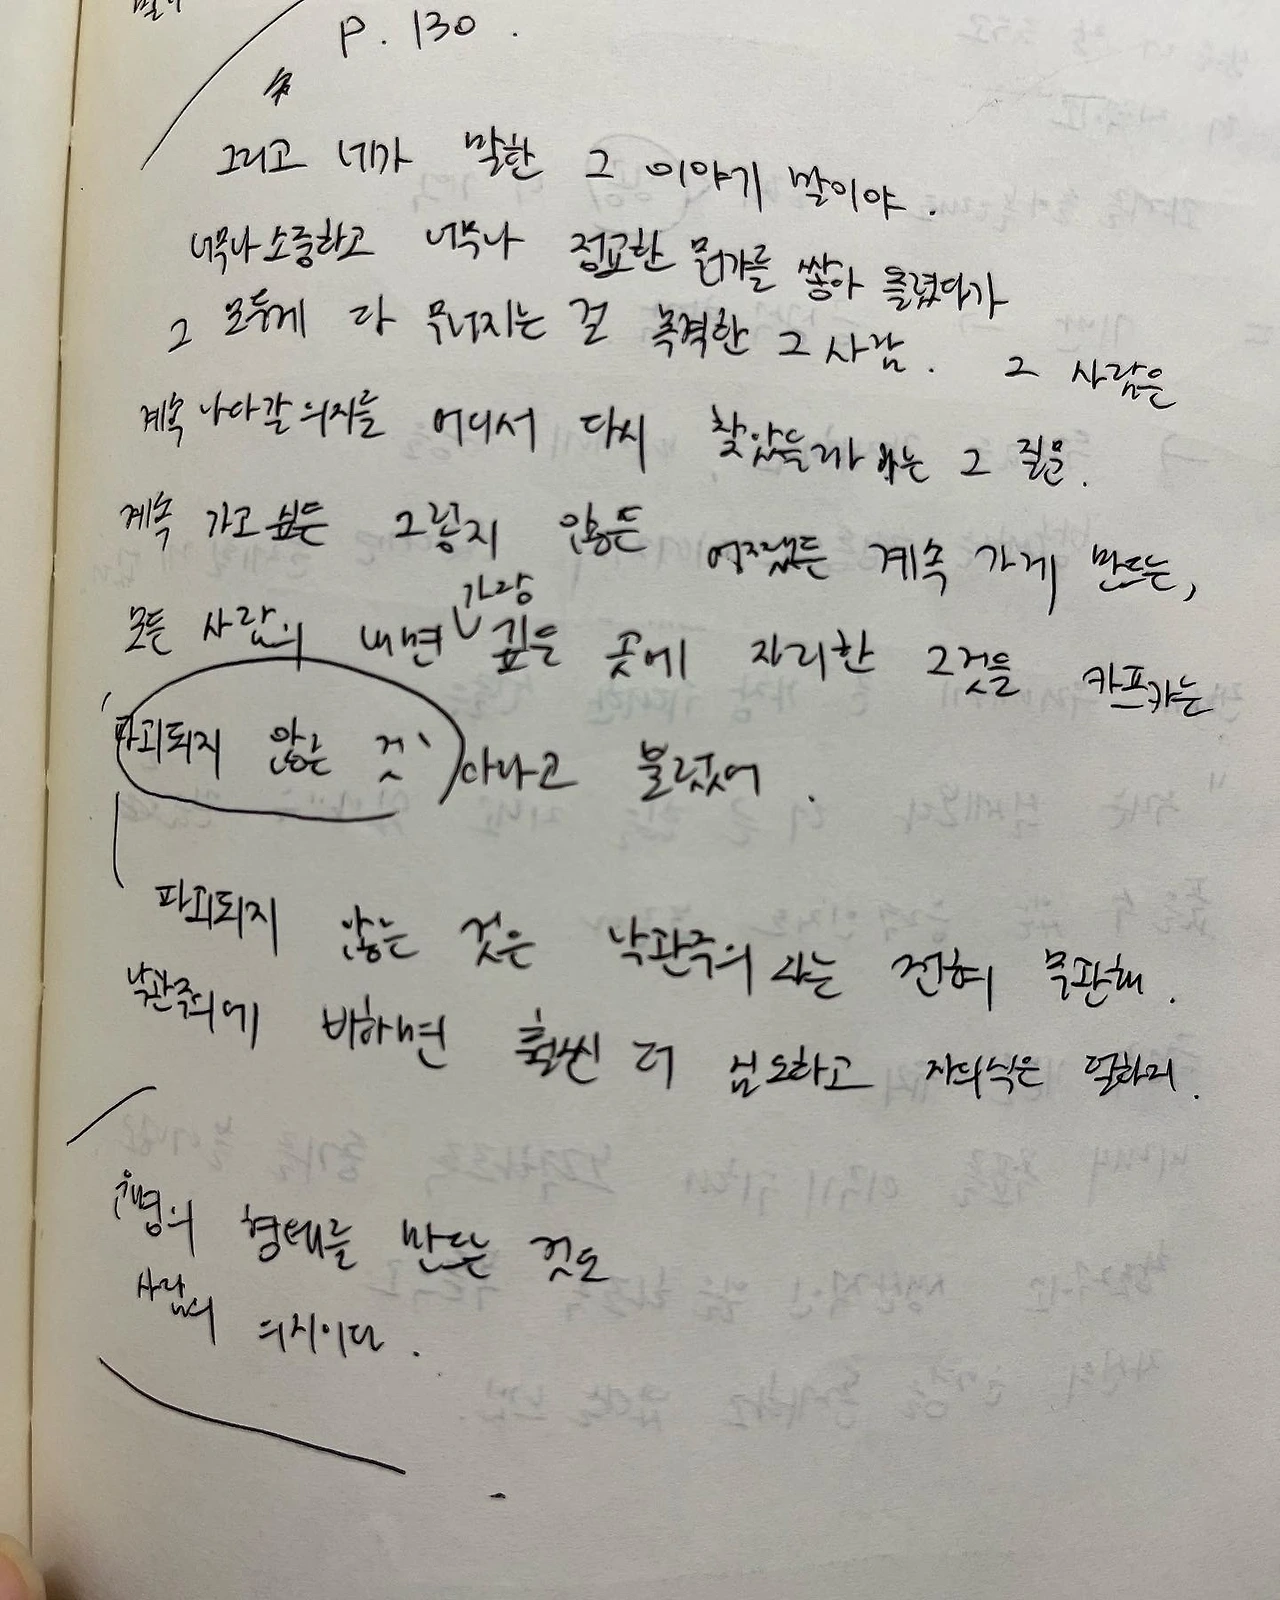 p. 130.
그리고 네가 말한 그 이야기 말이야.
너무나 소중하고 너무나 정교한 뭔가를 쌓아 올렸다가
그 모두게 다 무너지는 걸 목격한 그 사람. 그 사람은
계속 나아갈 의지를 어디서 다시 찾았을까 하는 그 질문.
계속 가고 싶든 그렇지 않든 어쨌든 계속 가게 만드는,
모든 사람의 내면 가장 깊은 곳에 자리한 그것을 카프카는
'파괴되지 않는 것' 이라고 불렀어.
파괴되지 않는 것은 낙관주의와는 전혀 무관해.
낙관주의에 비하면 훨씬 더 심오하고 자의식은 덜하지.
운명의 형태를 만드는 것도
사람의 의지이다.